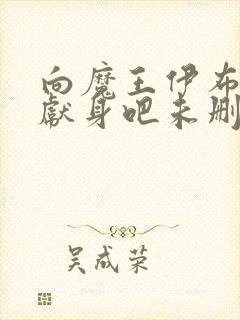 向魔王伊布
献身吧未删
吴成荣